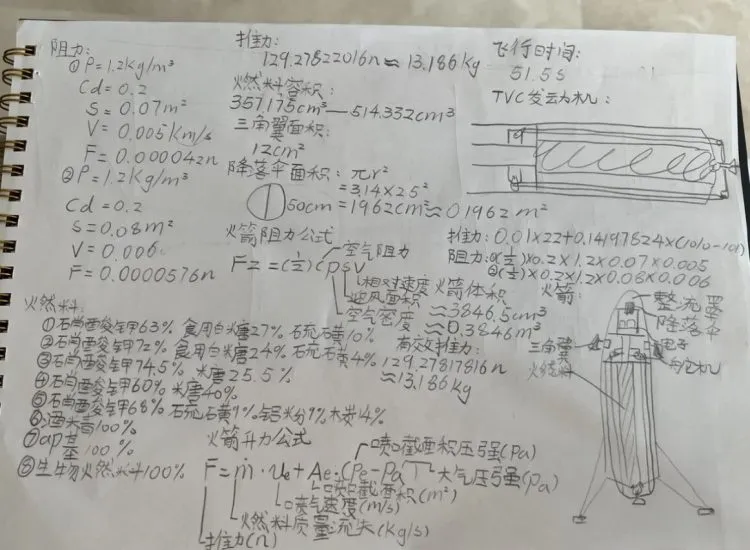 阻力:
①P=1.2Kg/m³
Cd=0.2
S=0.07m²
V=0.005Km/s
F=0.000042n
②P=1.2Kg/m³
Cd=0.2
S=0.08m²
V=0.006
F=0.0000576n
推力:
129.27822016n≈13.186kg
燃料容积:
357.175cm³—514.332cm³
三角翼面积:
12cm²
降落伞面积: πr²
=3.14×25²
50cm=1962cm²≈0.1962m²
火箭阻力公式
空气阻力
Fz=(½)cpsv
相对速度
迎风面积
空气密度
火箭体积
≈3846.5cm³
≈0.3846m³
有效推力:
129.27817816n
≈13.186Kg
飞行时间:
51.5s
TVC发动机:
推力: 0.01×22+0.14197824×(1010-101)
阻力:①(½)×0.2×1.2×0.07×0.005
②(½)×0.2×1.2×0.08×0.006
火箭:
整流罩
降落伞
电子
舵机
三角翼
火燃料
火燃料:
①石肖酉夋钾63% 食用白米唐27% 石㐬石黄10%
②石肖酉夋钾72% 食用白米唐24% 石㐬石黄4%
③石肖酉夋钾74.5% 米唐25.5%
④石肖酉夋钾60% 米唐40%
⑤石肖酉夋钾68% 石㐬石黄9% 铝米分9% 木炭14%
⑥酒米青100%
⑦ap基100%
⑧生物火燃料100%
火箭升力公式
F=ṁ·Ve+Ae·(Pe-Pa)
喷口截面积压强(Pa)
大气压强(pa)
喷口截面积(m²)
喷气速度(m/s)
火燃料质量流失(Kg/s)
推力(n)